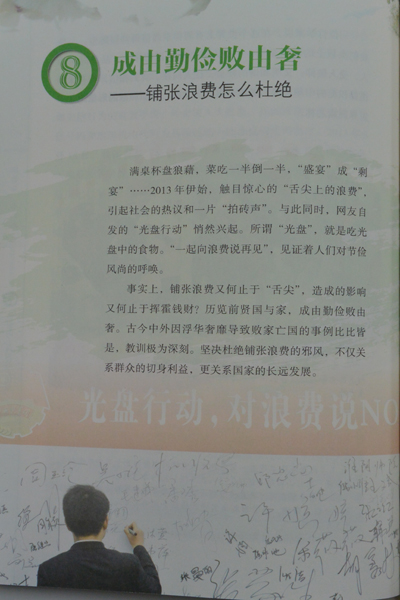 8
成由勤俭败由奢
——铺张浪费怎么杜绝
满桌杯盘狼藉，菜吃一半倒一半，“盛宴”成“剩
宴”……2013年伊始，触目惊心的“舌尖上的浪费”，
引起社会的热议和一片“拍砖声”。与此同时，网友自
发的“光盘行动”悄然兴起。所谓“光盘”，就是吃光
盘中的食物。“一起向浪费说再见”，见证着人们对节俭
风尚的呼唤。
事实上，铺张浪费又何止于“舌尖”，造成的影响
又何止于挥霍钱财？历览前贤国与家，成由勤俭败由
奢。古今中外因浮华奢靡导致败家亡国的事例比比皆
是，教训极为深刻。坚决杜绝铺张浪费的邪风，不仅关
系群众的切身利益，更关系国家的长远发展。
光盘行动，对浪费说NO